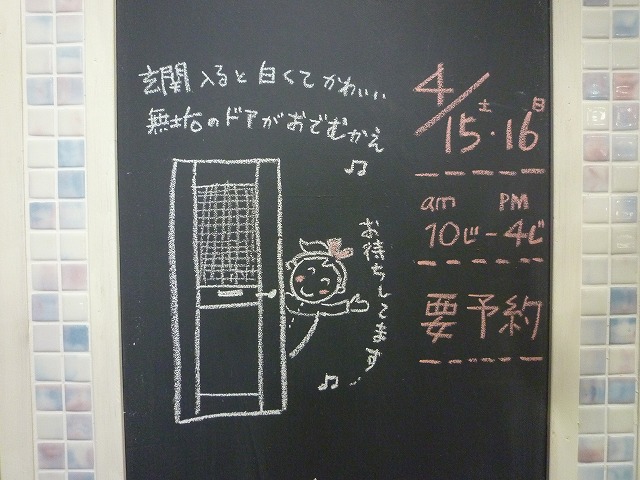 玄関 入ると 白くて かわいい
無垢のドアがおでむかえ
お待ちしてます
4/15土・16日
am PM
10じ-4じ
要予約